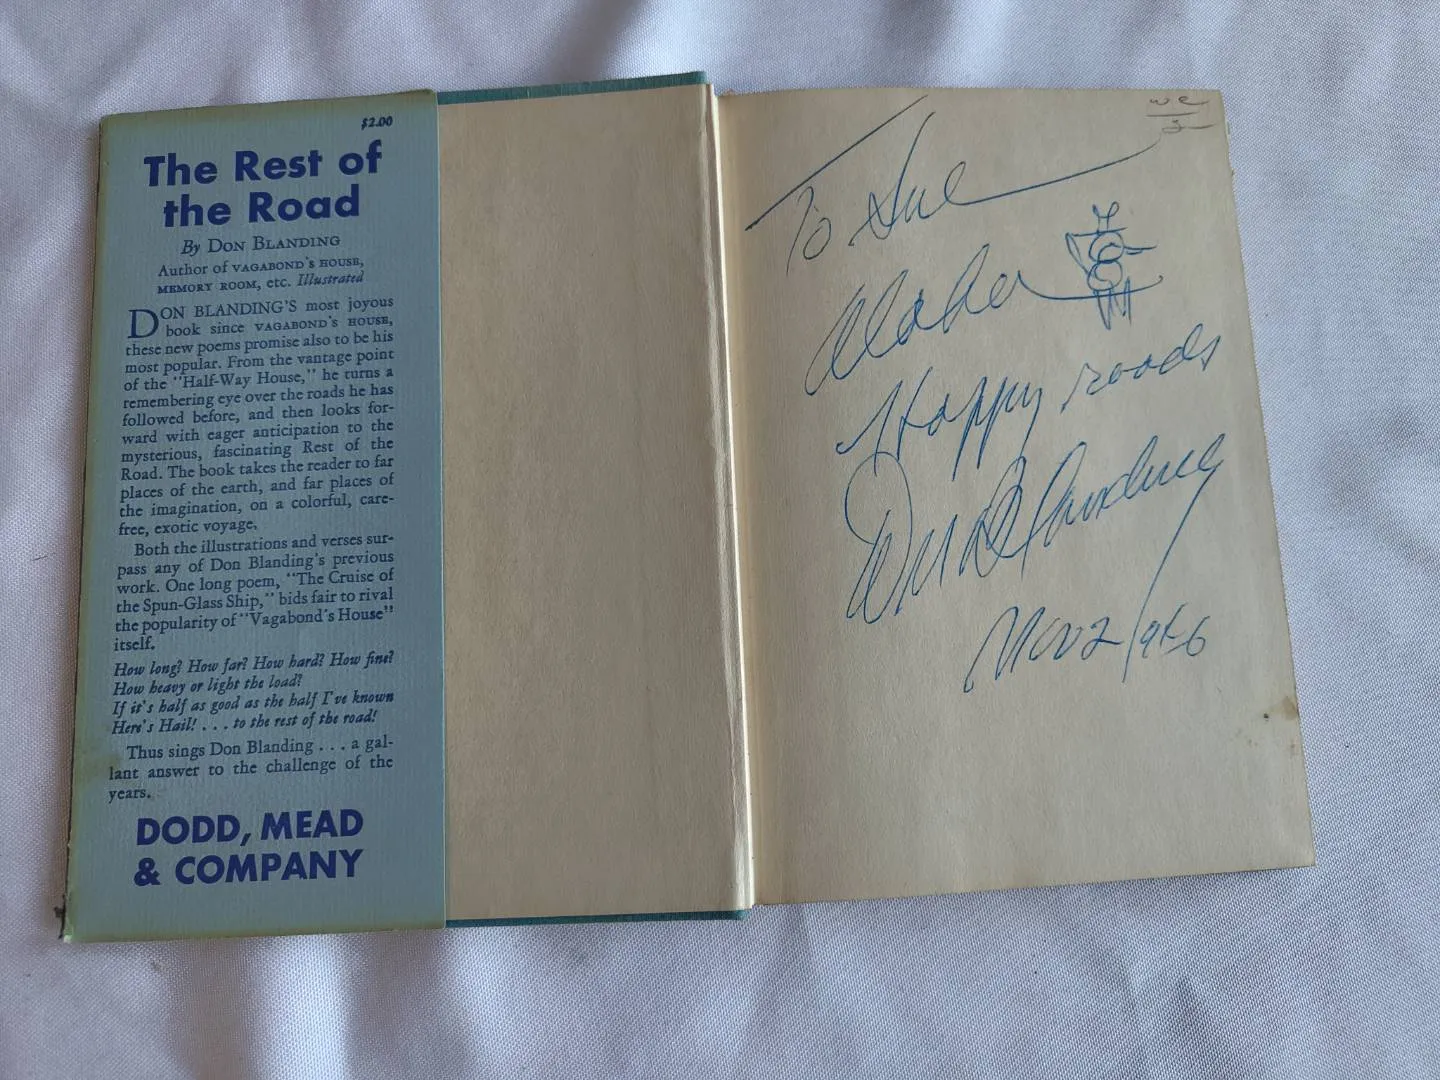 $2.00
The Rest of
the Road
By DON BLANDING
Author of VAGABOND'S HOUSE,
MEMORY ROOM, etc. Illustrated
DON BLANDING'S most joyous
book since VAGABOND'S HOUSE,
these new poems promise also to be his
most popular. From the vantage point
of the "Half-Way House," he turns a
remembering eye over the roads he has
followed before, and then looks for-
ward with eager anticipation to the
mysterious, fascinating Rest of the
Road. The book takes the reader to far
places of the earth, and far places of
the imagination, on a colorful, care-
free, exotic voyage.
Both the illustrations and verses sur-
pass any of Don Blanding's previous
work. One long poem, "The Cruise of
the Spun-Glass Ship," bids fair to rival
the popularity of "Vagabond's House"
itself.
How long? How far? How hard? How fine?
How heavy or light the load?
If it's half as good as the half I've known
Here's Hail! . . . to the rest of the road!
Thus sings Don Blanding . . . a gal-
lant answer to the challenge of the
years.
DODD, MEAD
& COMPANY
To Sue
Aloha
Happy roads
Don Blanding
Nov 2 1956